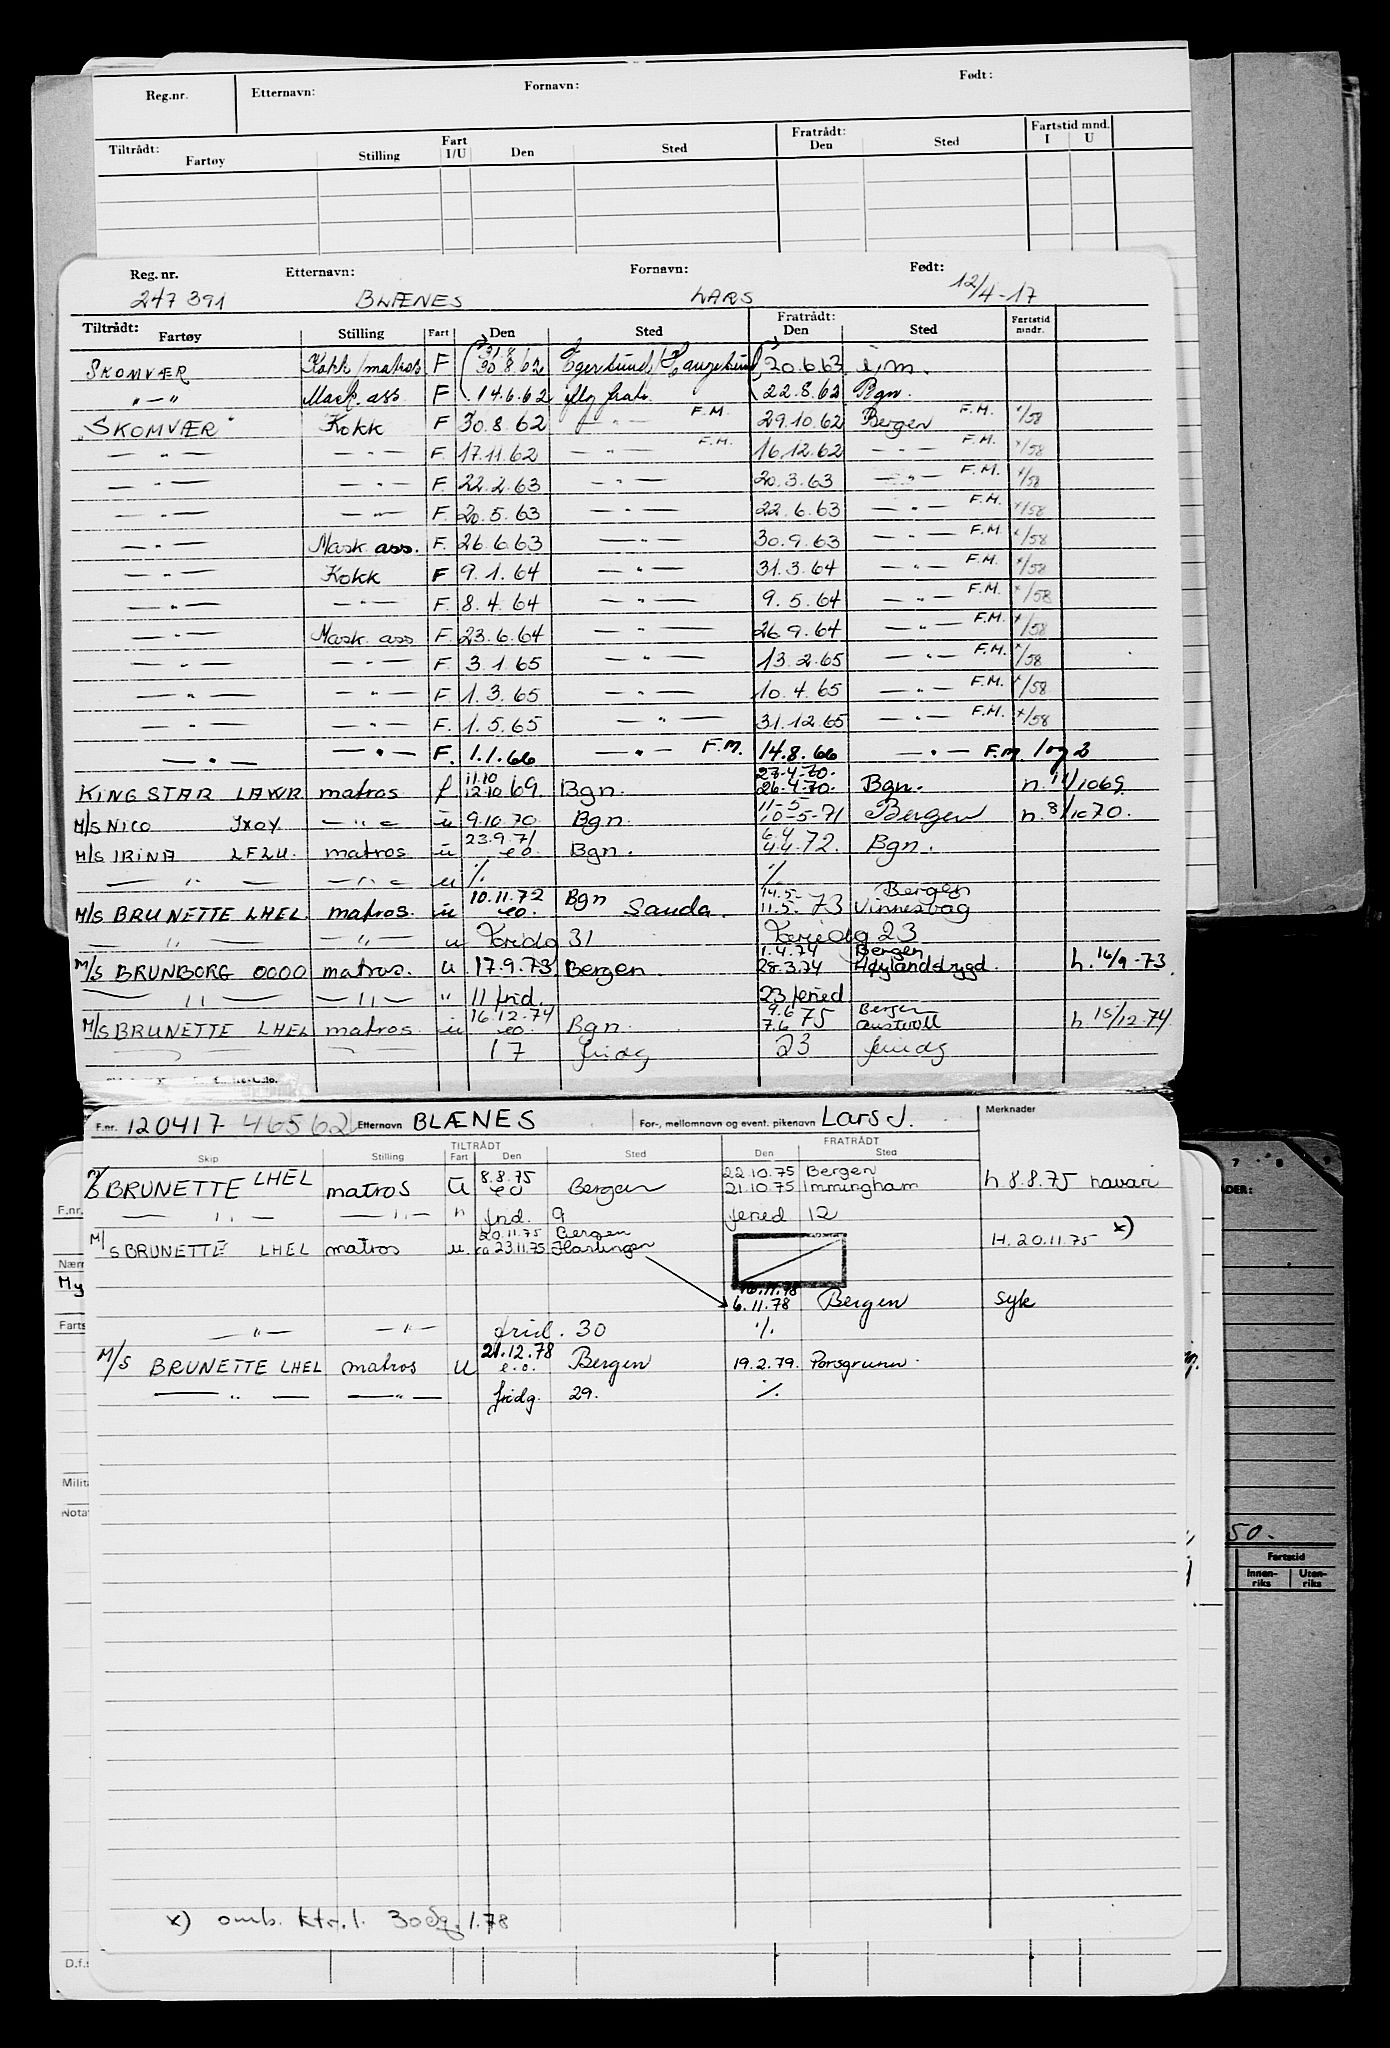 Reg.nr. Etternavn: Fornavn: Født:
Tiltrådt: Fartøy Stilling Fart I/U Den Sted Fratrådt: Den Sted Fartstid mnd. I U
Reg. nr. Etternavn: Fornavn: Født:
247391 BLÆNES LARS 12/4-17
Tiltrådt: Fartøy Stilling Fart Den Sted Fratrådt: Den Sted Fartstid mndr.
SKOMVÆR Kokk/matros F 31.8 30.8.62 Egersund/Haugesund 20.6.63 i.m.
— " — Mask. ass F 14.6.62 22.8.62 Bgn.
"SKOMVÆR" Kokk F 30.8.62 — " — F.M. 29.10.62 Bergen F.M. x/58
— " — — " — F. 17.11.62 — " — F.M. 16.12.62 — " — F.M. x/58
— " — — " — F. 22.2.63 — " — 20.3.63 — " — F.M. x/58
— " — — " — F. 20.5.63 — " — 22.6.63 — " — F.M. x/58
— " — Mask ass. F. 26.6.63 — " — 30.9.63 — " — F.M. x/58
— " — Kokk F 9.1.64 — " — 31.3.64 — " — F.M. x/58
— " — — " — F. 8.4.64 — " — 9.5.64 — " — F.M. x/58
— " — Mask. ass F. 23.6.64 — " — 26.9.64 — " — F.M. x/58
— " — — " — F. 3.1.65 — " — 13.2.65 — " — F.M. x/58
— " — — " — F. 1.3.65 — " — 10.4.65 — " — F.M. x/58
— " — — " — F. 1.5.65 — " — 31.12.65 — " — F.M. x/58
— " — — " — F. 1.1.66 — " — F.M. 14.8.66 — " — F.M. 1 og 2
KING STAR LAWR matros f 11.10 12.10 69 Bgn. 27.4.70. 26.4.70. Bgn. n. 11/1069
M/S NICO JXOY — " — u 9.10.70 Bgn. 11-5 10-5-71 Bergen n. 8/1070.
M/S IRINA LFLU. matros u 23.9.71 eo. Bgn. 6.4 4.4.72. Bgn.
— " — — " — u %. %
M/S BRUNETTE LHEL matros. u 10.11.72 eo. Bgn Sauda. 14.5. 11.5. 73 Bergen Vinnesvåg
— " — — " — u 31 23
M/S BRUNBORG OCOO matros. u 17.9.73 Bergen. 1.4.74 28.3.74 Bergen Høylandsbygd. h. 16/9-73.
— " — — " — " 11 frid. 23 feried
M/S BRUNETTE LHEL matros u 16.12.74 eo. Bgn. 9.6 7.6 75 Bergen Austevoll h. 15/12-74
17 fridg 23
F.nr. 120417-46562 Etternavn BLÆNES For-, mellomnavn og event. pikenavn Lars J. Merknader
TILTRÅDT FRATRÅDT
Skip Stilling Fart Den Sted Den Sted
M/S BRUNETTE LHEL matros U 8.8.75 eo Bergen 22.10.75 21.10.75 Bergen Immingham h 8.8.75 havari
— " — — " — " frid. 9 feried 12
M/S BRUNETTE LHEL matros u 20.11.75 ca 23.11.75 Bergen Harlingen H. 20.11.75 x)
6.11.78 Bergen syk
— " — — " — frid. 30 %
M/S BRUNETTE LHEL matros U 21.12.78 e.o. Bergen 19.2.79. Porsgrunn.
— " — — " — fridg. 29. %.
x) omb. ktr. l. 30dg. 1.78
F.nr.
My
Farts
Milit
Notat
D.f.
7 8 9
50.
Fartstid
Innen-riks Uten-riks